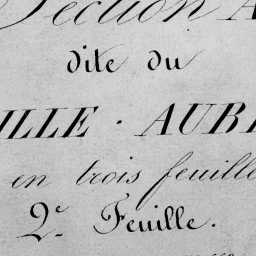 Section A
dite du
ILLE · AUB
en trois feuille
2e Feuille.